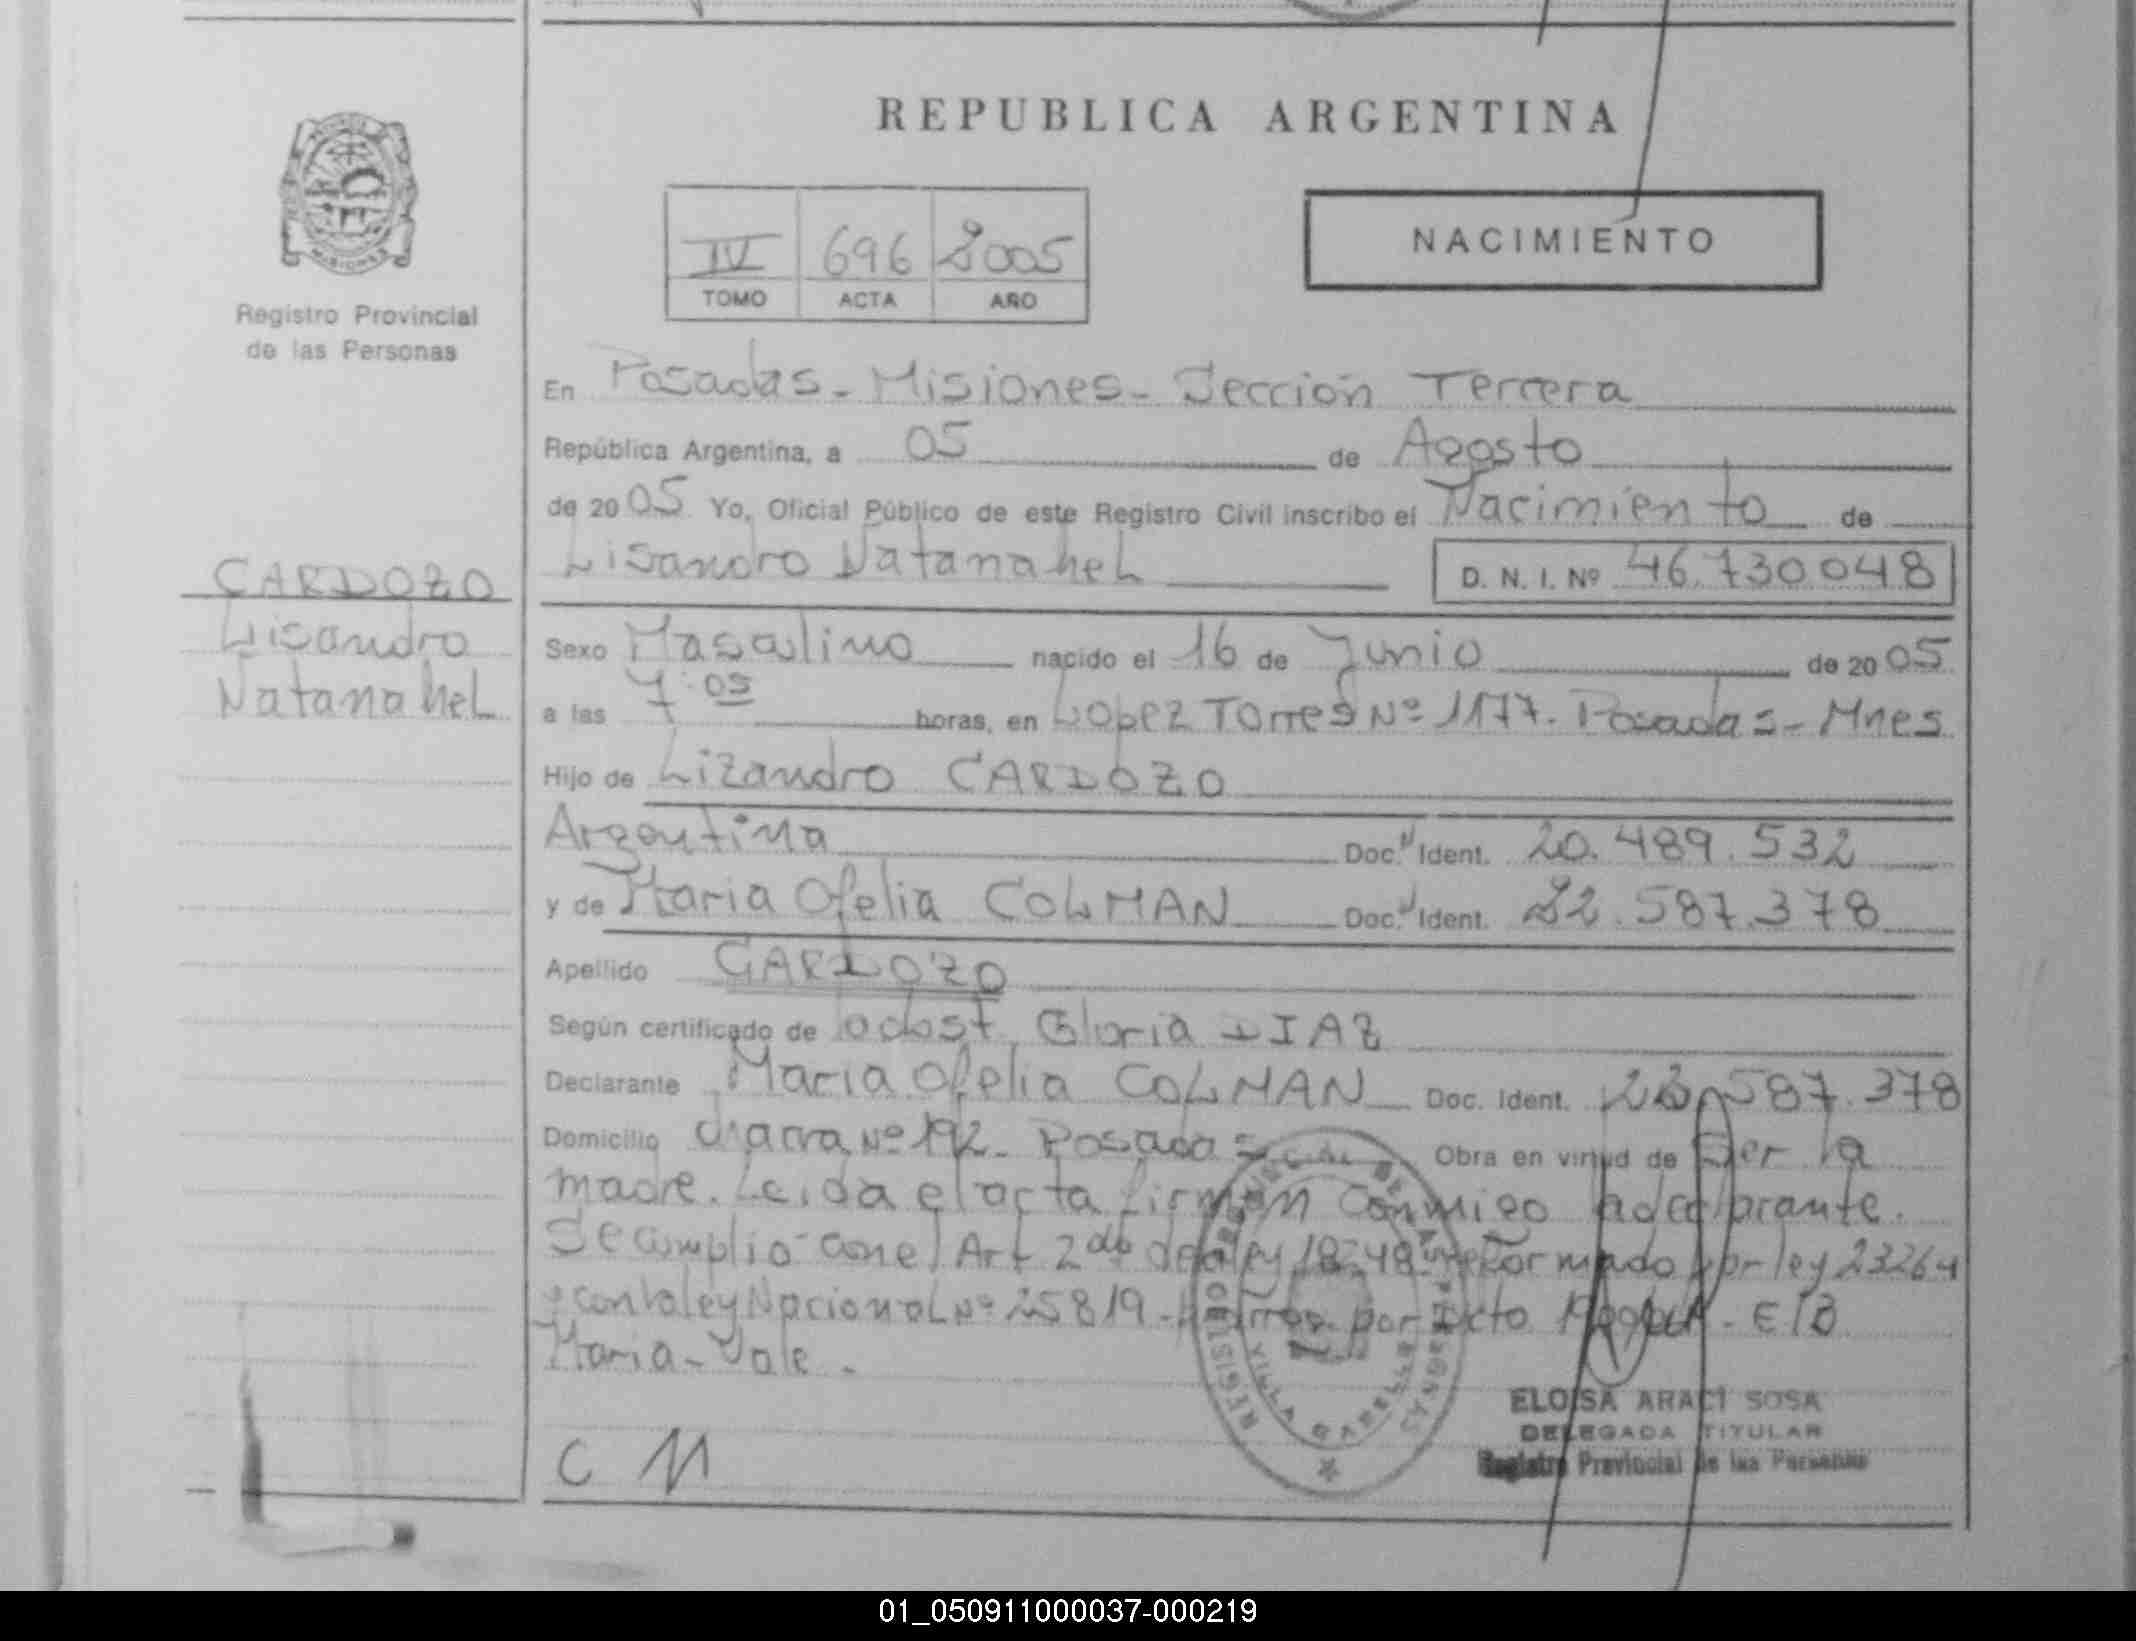 REPUBLICA ARGENTINA
MISIONES
Registro Provincial
de las Personas
IV 696 2005
TOMO ACTA AÑO
NACIMIENTO
En Posadas - Misiones - Sección Tercera
República Argentina, a 05 de Agosto
de 2005 Yo, Oficial Público de este Registro Civil inscribo el Nacimiento de
Lisandro Natanahel D. N. I. Nº 46.730.048
CARDOZO
Lisandro
Natanahel
Sexo Masculino nacido el 16 de Junio de 2005
a las 7:05 horas, en Lopez Torres Nº 1177. Posadas - Mnes
Hijo de Lizandro CARDOZO
Argentina Doc. Ident. 20.489.532
y de Maria Ofelia COLMAN Doc. Ident. 22.587.378
Apellido CARDOZO
Según certificado de la obst. Gloria DIAZ
Declarante Maria Ofelia COLMAN Doc. Ident. 22.587.378
Domicilio Chacra Nº 192 - Posadas Obra en virtud de Ser la
madre. Leida el acta firman conmigo la declarante.
Se cumplio con el Art 2do de la ley 18248 reformado por ley 23264
y con la ley Nacional Nº 25819 - por Dcto
Maria - Vale -
C M
REGISTRO
VILLA CABELLO
ELOISA ARACI SOSA
DELEGADA TITULAR
Registro Provincial de las Personas
01_050911000037-000219